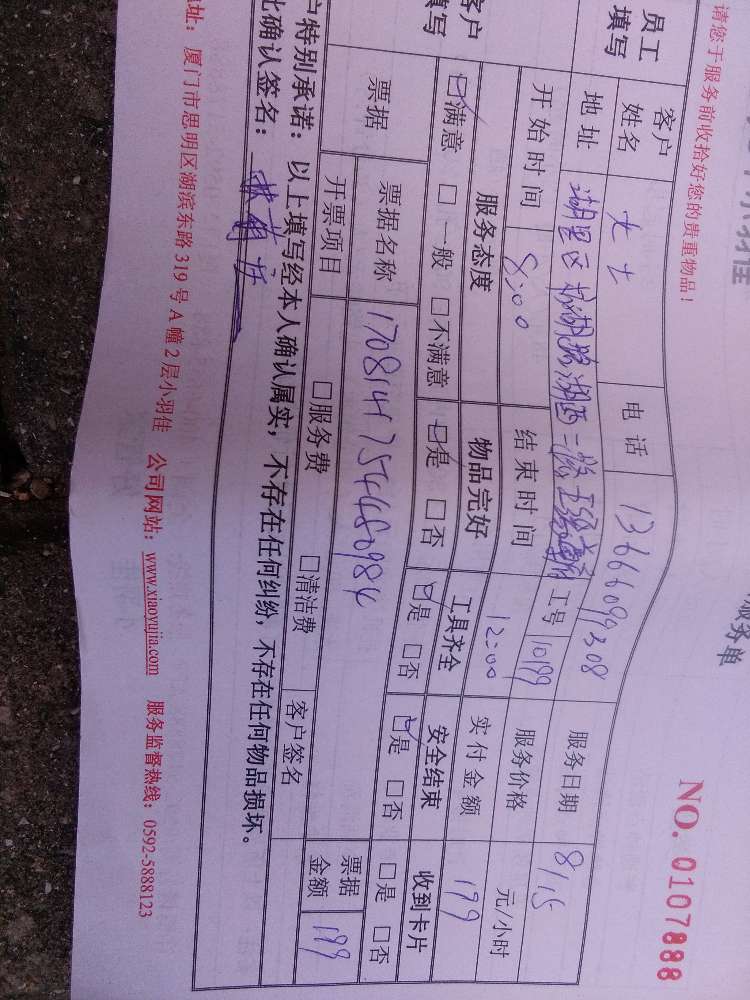 小羽佳
服务单
NO. 0107888
请您于服务前收拾好您的贵重物品!
员工填写
客户姓名 女士 电话 13666099308 服务日期 8/15
地址 湖里区 湖西二 工号 10199 服务价格 元/小时
开始时间 8:00 结束时间 12:00 实付金额 199
客户填写
服务态度 物品完好 工具齐全 安全结束 收到卡片
☑满意 □一般 □不满意 ☑是 □否 ☑是 □否 ☑是 □否 □是 □否
票据 票据名称 1708141754480984
开票项目 □服务费 □清洁费 客户签名 票据金额 199
户特别承诺:以上填写经本人确认属实,不存在任何纠纷,不存在任何物品损坏。
此确认签名:
地址:厦门市思明区湖滨东路319号A幢2层小羽佳 公司网站:www.xiaoyujia.com 服务监督热线:0592-5888123